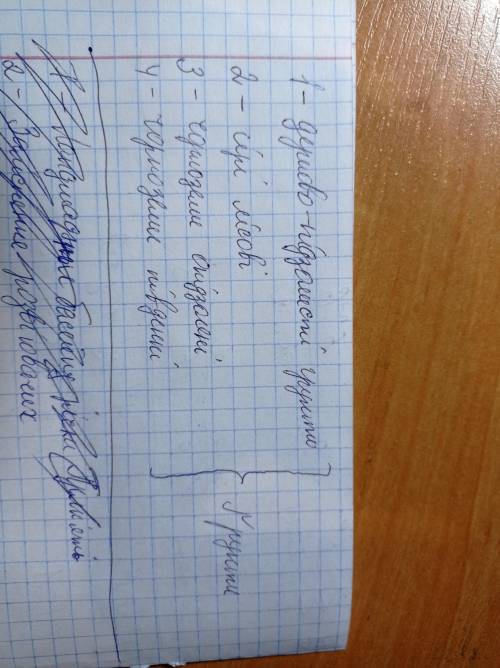 1 - дерново-підзолисті ґрунти
2 - сірі лісові
3 - чорноземи опідзолені
4 - чорноземи південні
Ґрунти
басейн річки Прип'ять
2 -